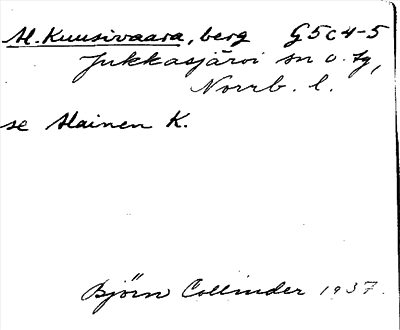 Al. Kuusivaara, berg G5c4-5
Jukkasjärvi sn o. tg,
Norrb. l.
se Alainen K.
Björn Collinder 1937.